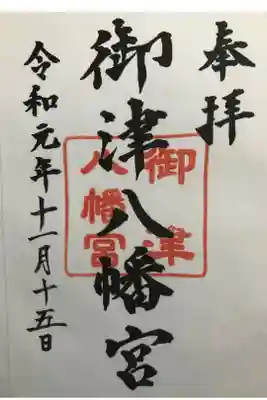 奉拝
御津八幡宮
御津
八幡宮
令和元年十一月十五日